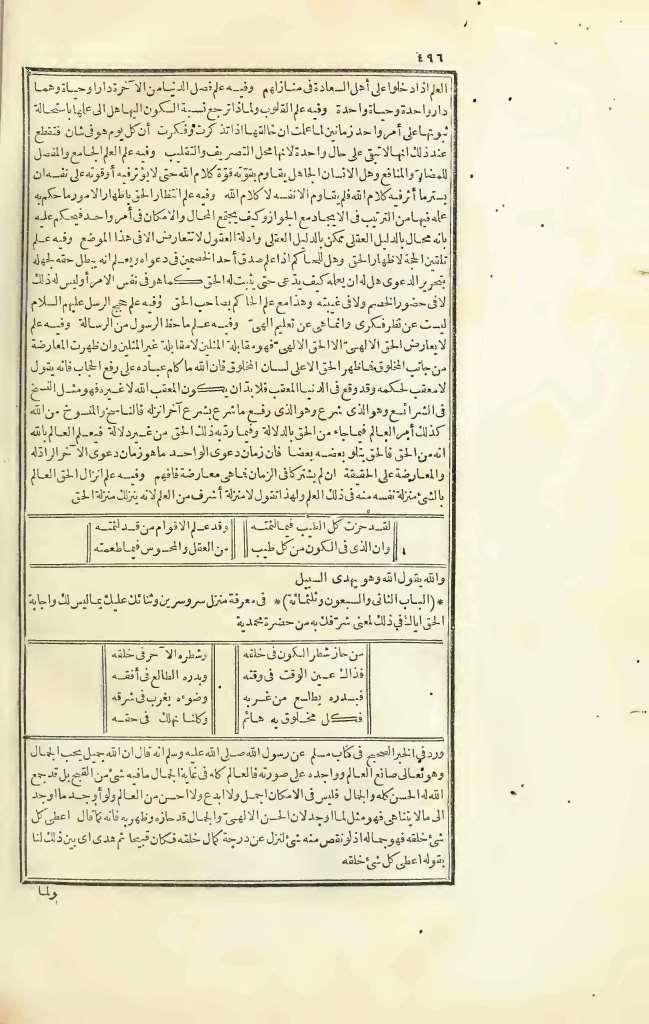 ٤٩٦
العلم اذا دخلوا على أهل السعادة فى منازلهم وفيه علم فصل الدنيا من الآخرة دارا وحياة وهما
دار واحدة وحياة واحدة وفيه علم القلوب ولماذا ترجع نسبة السكون اليها هل الى علمها باستحالة
ثبوتها على أمر واحد زمانين لما علمت ان خالقها اذا تذكرت وفكرت أن كل يوم هو فى شان فتقطع
عند ذلك انها لا تبقى على حال واحدة لانها محل التصريف والتقليب وفيه علم العلم الجامع والمفصل
للمضار والمنافع وهل الانسان الجاهل يقاوم بقوته قوة كلام الله حتى لا يؤثر فيه أو قوته على نفسه ان
يستر ما أثر فيه كلام الله فلم يقاوم الا نفسه لا كلام الله وفيه علم انتظار الحق باظهار الامور ما حكم به
علمه فيها من الترتيب فى الايجاد مع الجواز وكيف يجتمع المحال والامكان فى أمر واحد فيحكم عليه
بانه محال بالدليل العقلى ممكن بالدليل العقلى وادلة العقول لا تتعارض الا فى هذا الموضع وفيه علم
تلقين الحجة لاظهار الحق وهل للحاكم اذا علم صدق أحد الخصمين فى دعواه ويعلم انه يبطل حقه لجهله
بتحرير الدعوى هل له ان يعلمه كيف يدعى حتى يثبت له الحق كما هو فى نفس الامر أو ليس له ذلك
لا فى حضور الخصم ولا فى غيبته وهذا مع علم الحاكم بصاحب الحق وفيه علم حجج الرسل عليهم السلام
ليست عن نظر فكرى وانما هى عن تعليم الهىّ وفيه علم ما حفظ الرسول من الرسالة وفيه علم
لا يعارض الحق الالهىّ الا الحق الالهىّ فهو مقابلة المثلين لا مقابلة غير المثلين وان ظهرت المعارضة
من جانب المخلوق فما ظهر الحق الا على لسان المخلوق فان الله ما كلم عباده على رفع الحجاب فانه يقول
لا معقب لحكمه وقد وقع فى الدنيا المعقب فلا بدّ ان يكون المعقب الله لا غيره فهو مثل النسخ
فى الشرائع وهو الذى شرع وهو الذى رفع ما شرع بشرع آخر انزله فالناسخ والمنسوخ من الله
كذلك أمر العالم فيما جاء من الحق بالدلالة وفيما رد به ذلك الحق من غير دلالة فيعلم العالم بالله
انه من الحق فالحق يتلو بعضه بعضا فان زمان دعوى الواحد ما هو زمان دعوى الآخر الرادّ له
والمعارضة على الحقيقة ان لم يشتركا فى الزمان فما هى معارضة فافهم وفيه علم انزال الحق العالم
بالشئ منزلة نفسه منه فى ذلك العلم ولهذا تقول لا منزلة أشرف من العلم لانه ينزلك منزلة الحق
لقد حزت كل الطيب فيما لثمته وقد علم الاقوام من قد لثمته
وان الذى فى الكون من كل طيب من العقل والمحسوس فيما طعمته
والله يقول الله وهو يهدى السبيل
*(الباب الثانى والسبعون وثلثمائة)* فى معرفة منزل سر وسرين وثنائك عليك بما ليس لك واجابة
الحق اياك فى ذلك لمعنى شرفك به من حضرة محمدية
من حاز شطر الكون فى خلقه وشطره الآخر فى خلقه
فذاك عين الوقت فى وقته وبدره الطالع فى أفقه
فبدره يطلع من غربه وضوءه يغرب فى شرقه
فكل مخلوق به هائم وكلنا نهلك فى حقه
ورد فى الخبر الصحيح فى كتاب مسلم عن رسول الله صلى الله عليه وسلم انه قال ان الله جميل يحب الجمال
وهو تعالى صانع العالم وواجده على صورته فالعالم كله فى غاية الجمال ما فيه شئ من القبح بل قد جمع
الله له الحسن كله والجمال فليس فى الامكان اجمل ولا ابدع ولا احسن من العالم ولو أوجد ما اوجد
الى ما لا يتناهى فهو مثل لما اوجد لان الحسن الالهىّ والجمال قد حازه وظهر به فانه كما قال اعطى كل
شئ خلقه فهو جماله اذ لو نقص منه شئ لنزل عن درجة كمال خلقه فكان قبيحا ثم هدى اى بين ذلك لنا
بقوله اعطى كل شئ خلقه
ولما